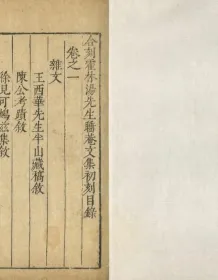 合刻霍林湯先生睡菴文集初刻目錄
卷之一
雜文
王西華先生半山藏稿敘
陳公考蹟敘
徐見可鳩茲集敘